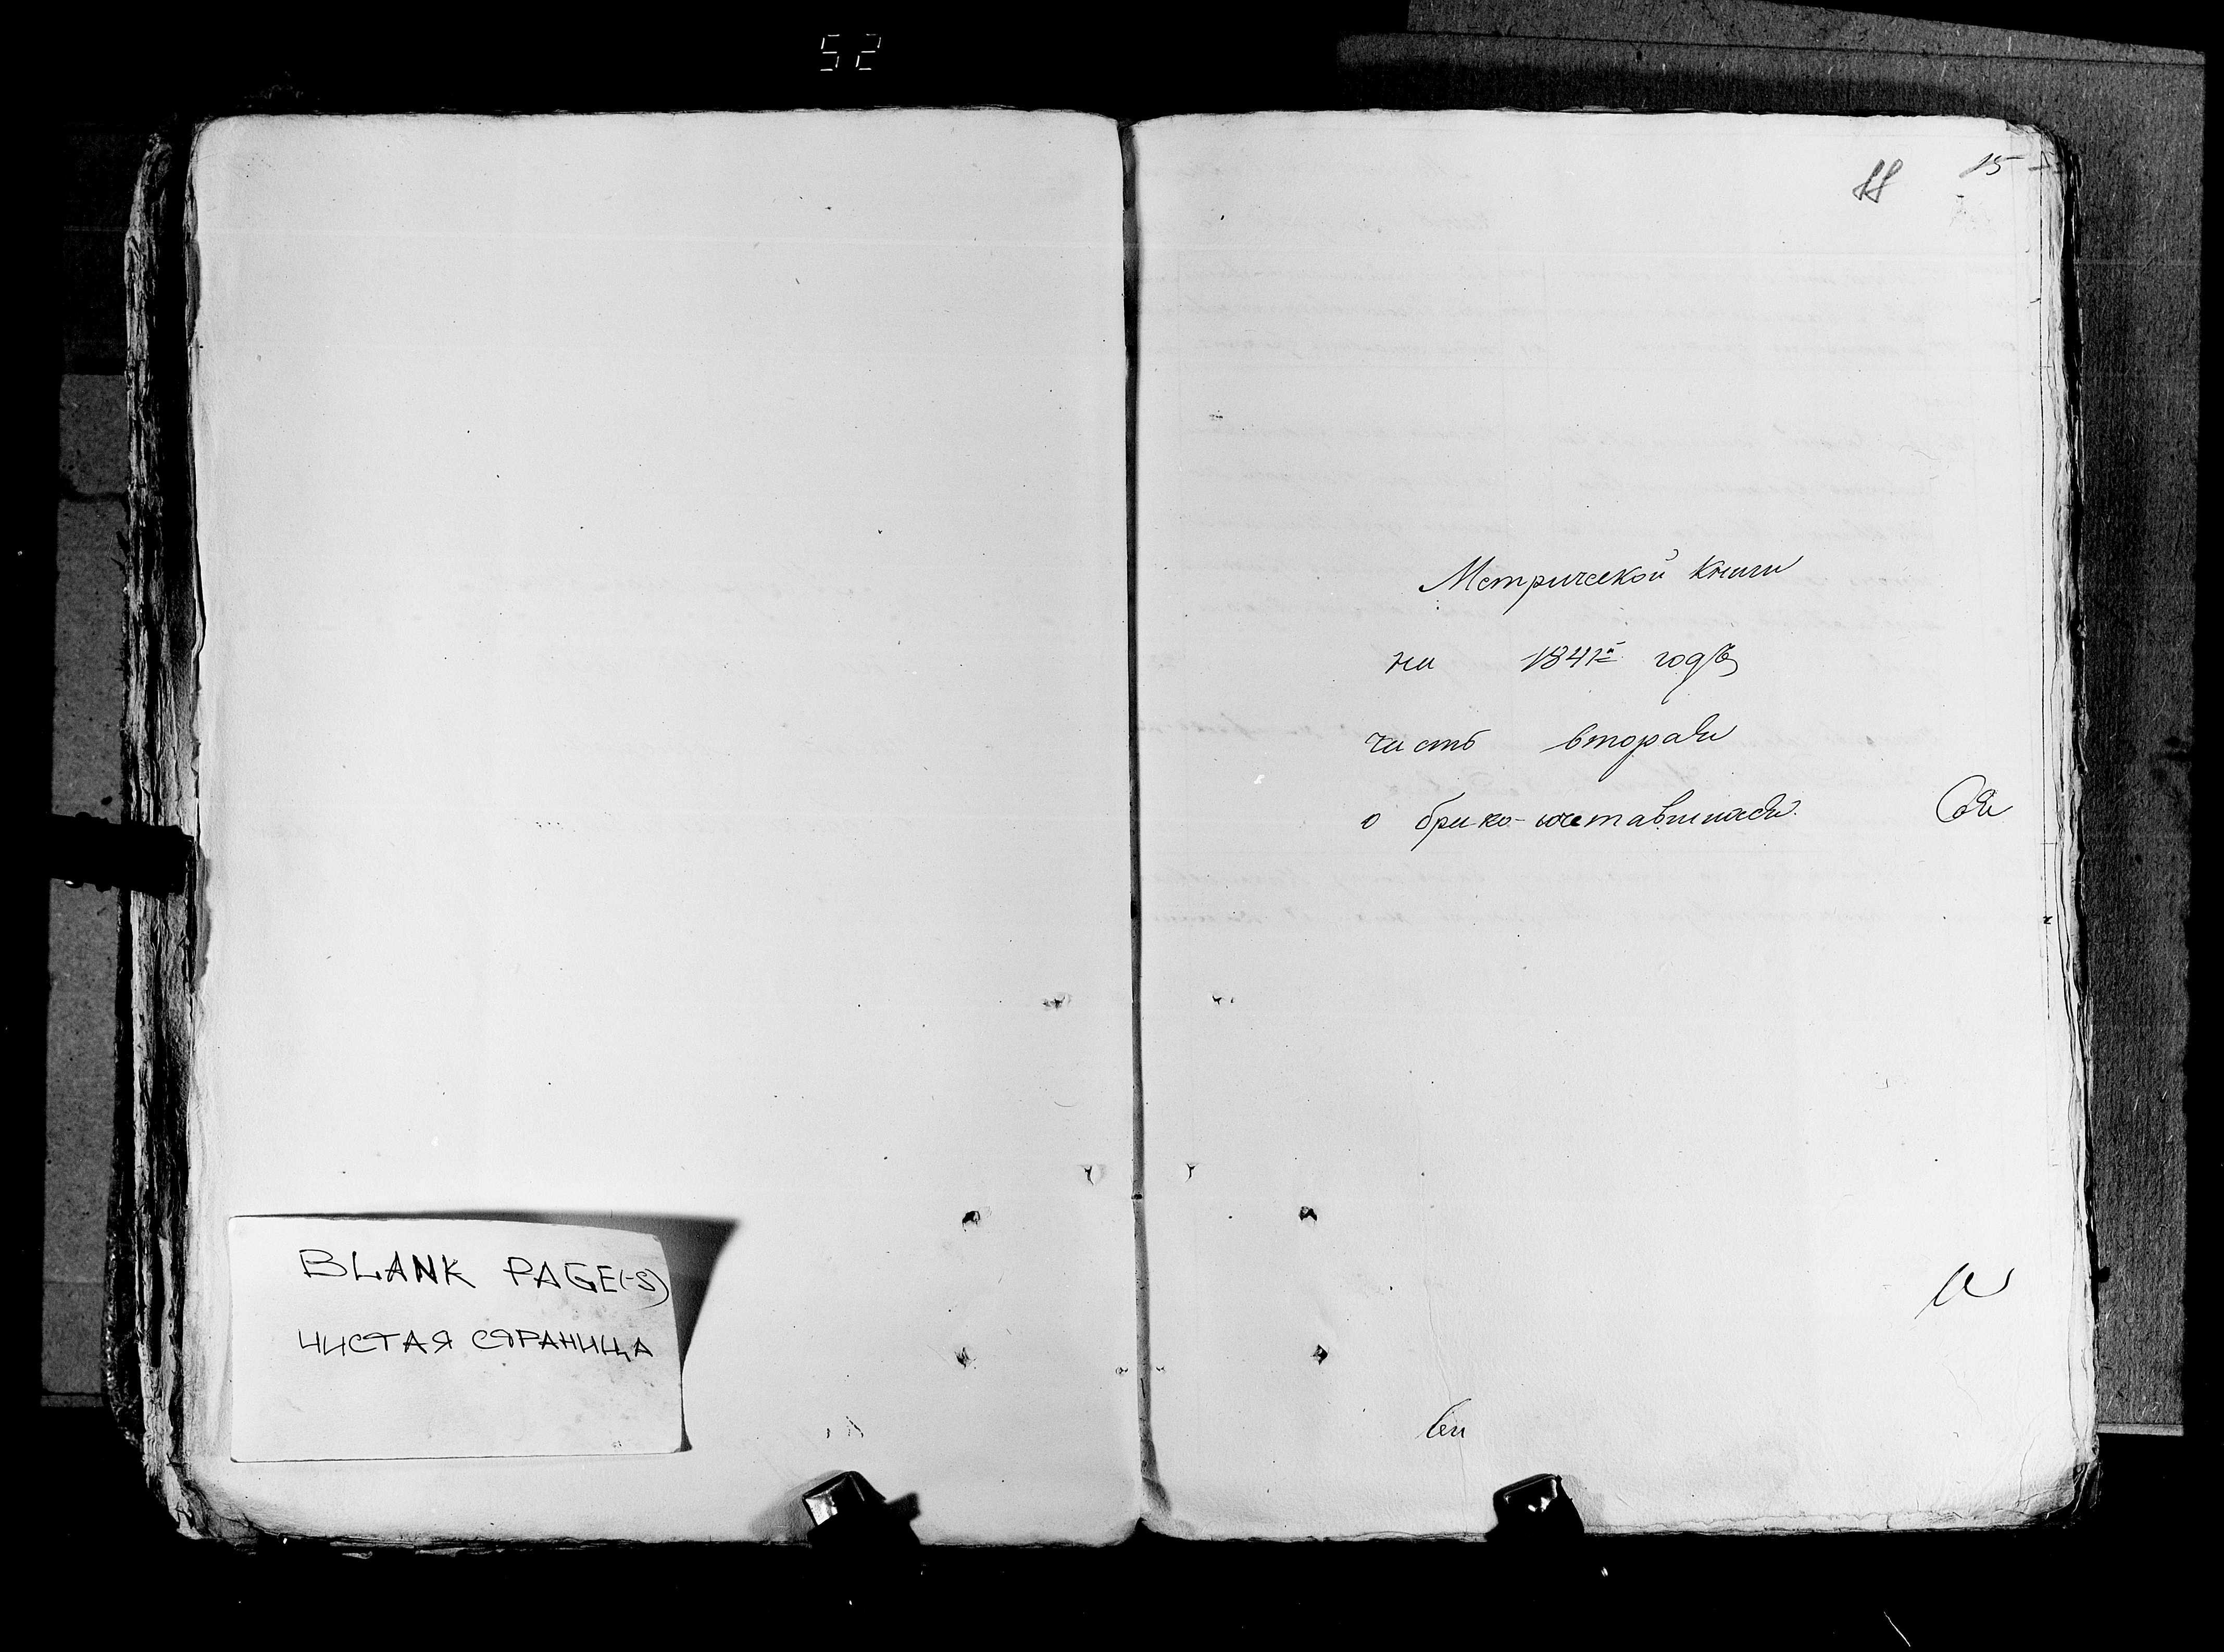 52
15
BLANK PAGE(-S)
ЧИСТАЯ СТРАНИЦА
Метрической книги
на 1841й годъ
часть вторая
о брако-сочетавшихся.